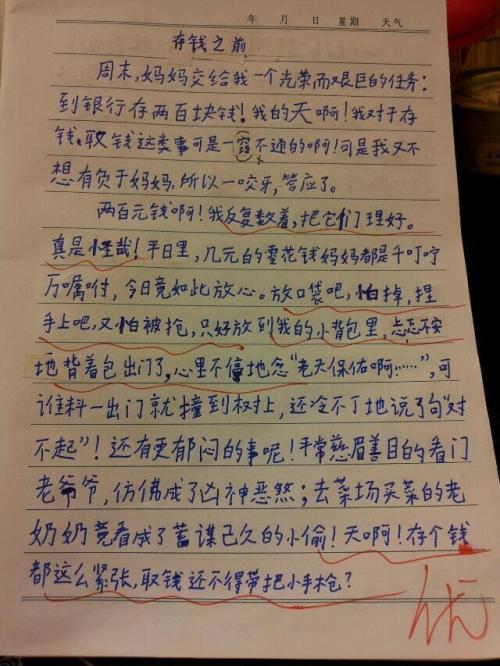 年 月 日 星期 天气
存钱之前
周末,妈妈交给我一个光荣而艰巨的任务:
到银行存两百块钱!我的天啊!我对于存
钱、取钱这类事可是一窍不通的啊!可是我又不
想有负于妈妈,所以一咬牙,答应了。
两百元钱啊!我反复数着,把它们理好。
真是怪哉!平日里,几元的零花钱妈妈都是千叮咛
万嘱咐,今日竟如此放心。放口袋吧,怕掉,捏
手上吧,又怕被抢,只好放到我的小背包里,忐忑不安
地背着包出门了,心里不停地念“老天保佑啊……”,可
谁料一出门就撞到树上,还冷不丁地说了句“对
不起”!还有更郁闷的事呢!平常慈眉善目的看门
老爷爷,仿佛成了凶神恶煞;去菜场买菜的老
奶奶竟看成了蓄谋已久的小偷!天啊!存个钱
都这么紧张,取钱还不得带把小手枪?
优